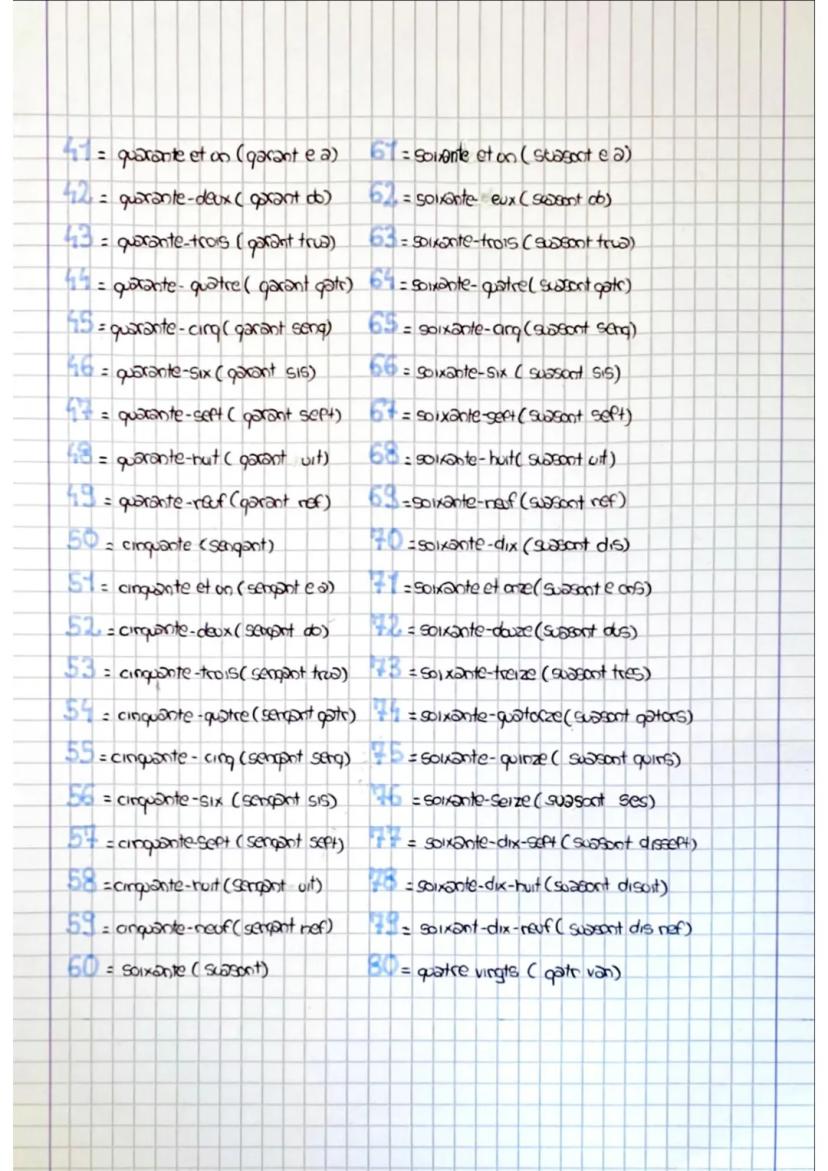 41 = quarante et on (qarant e a)
42 = quarante-deux (qarant do)
43 = quarante-trois (qarant trua)
44 = quarante-quatre (qarant qatr)
45 = quarante-cinq (qarant senq)
46 = quarante-six (qarant sis)
47 = quarante-sept (qarant sept)
48 = quarante-huit (qarant uit)
49 = quarante-neuf (qarant nef)
50 = cinquante (senqant)
51 = cinquante et on (senqant e a)
52 = cinquante-deux (senqant do)
53 = cinquante-trois (senqant trua)
54 = cinquante-quatre (senqant qatr)
55 = cinquante-cinq (senqant senq)
56 = cinquante-six (senqant sis)
57 = cinquante-sept (senqant sept)
58 = cinquante-huit (senqant uit)
59 = cinquante-neuf (senqant nef)
60 = soixante (suasant)
61 = soixante et on (suasant e a)
62 = soixante- eux (suasant do)
63 = soixante-trois (suasant trua)
64 = soixante-quatre (suasant qatr)
65 = soixante-cinq (suasant senq)
66 = soixante-six (suasant sis)
67 = soixante-sept (suasant sept)
68 = soixante-huit (suasant uit)
69 = soixante-neuf (suasant nef)
70 = soixante-dix (suasant dis)
71 = soixante et onze (suasant e ons)
72 = soixante-douze (suasant dus)
73 = soixante-treize (suasant tres)
74 = soixante-quatorze (suasant qators)
75 = soixante-quinze (suasant quins)
76 = soixante-seize (suasant ses)
77 = soixante-dix-sept (suasant dissept)
78 = soixante-dix-huit (suasant disuit)
79 = soixant-dix-neuf (suasant dis nef)
80 = quatre virgts (qatr van)